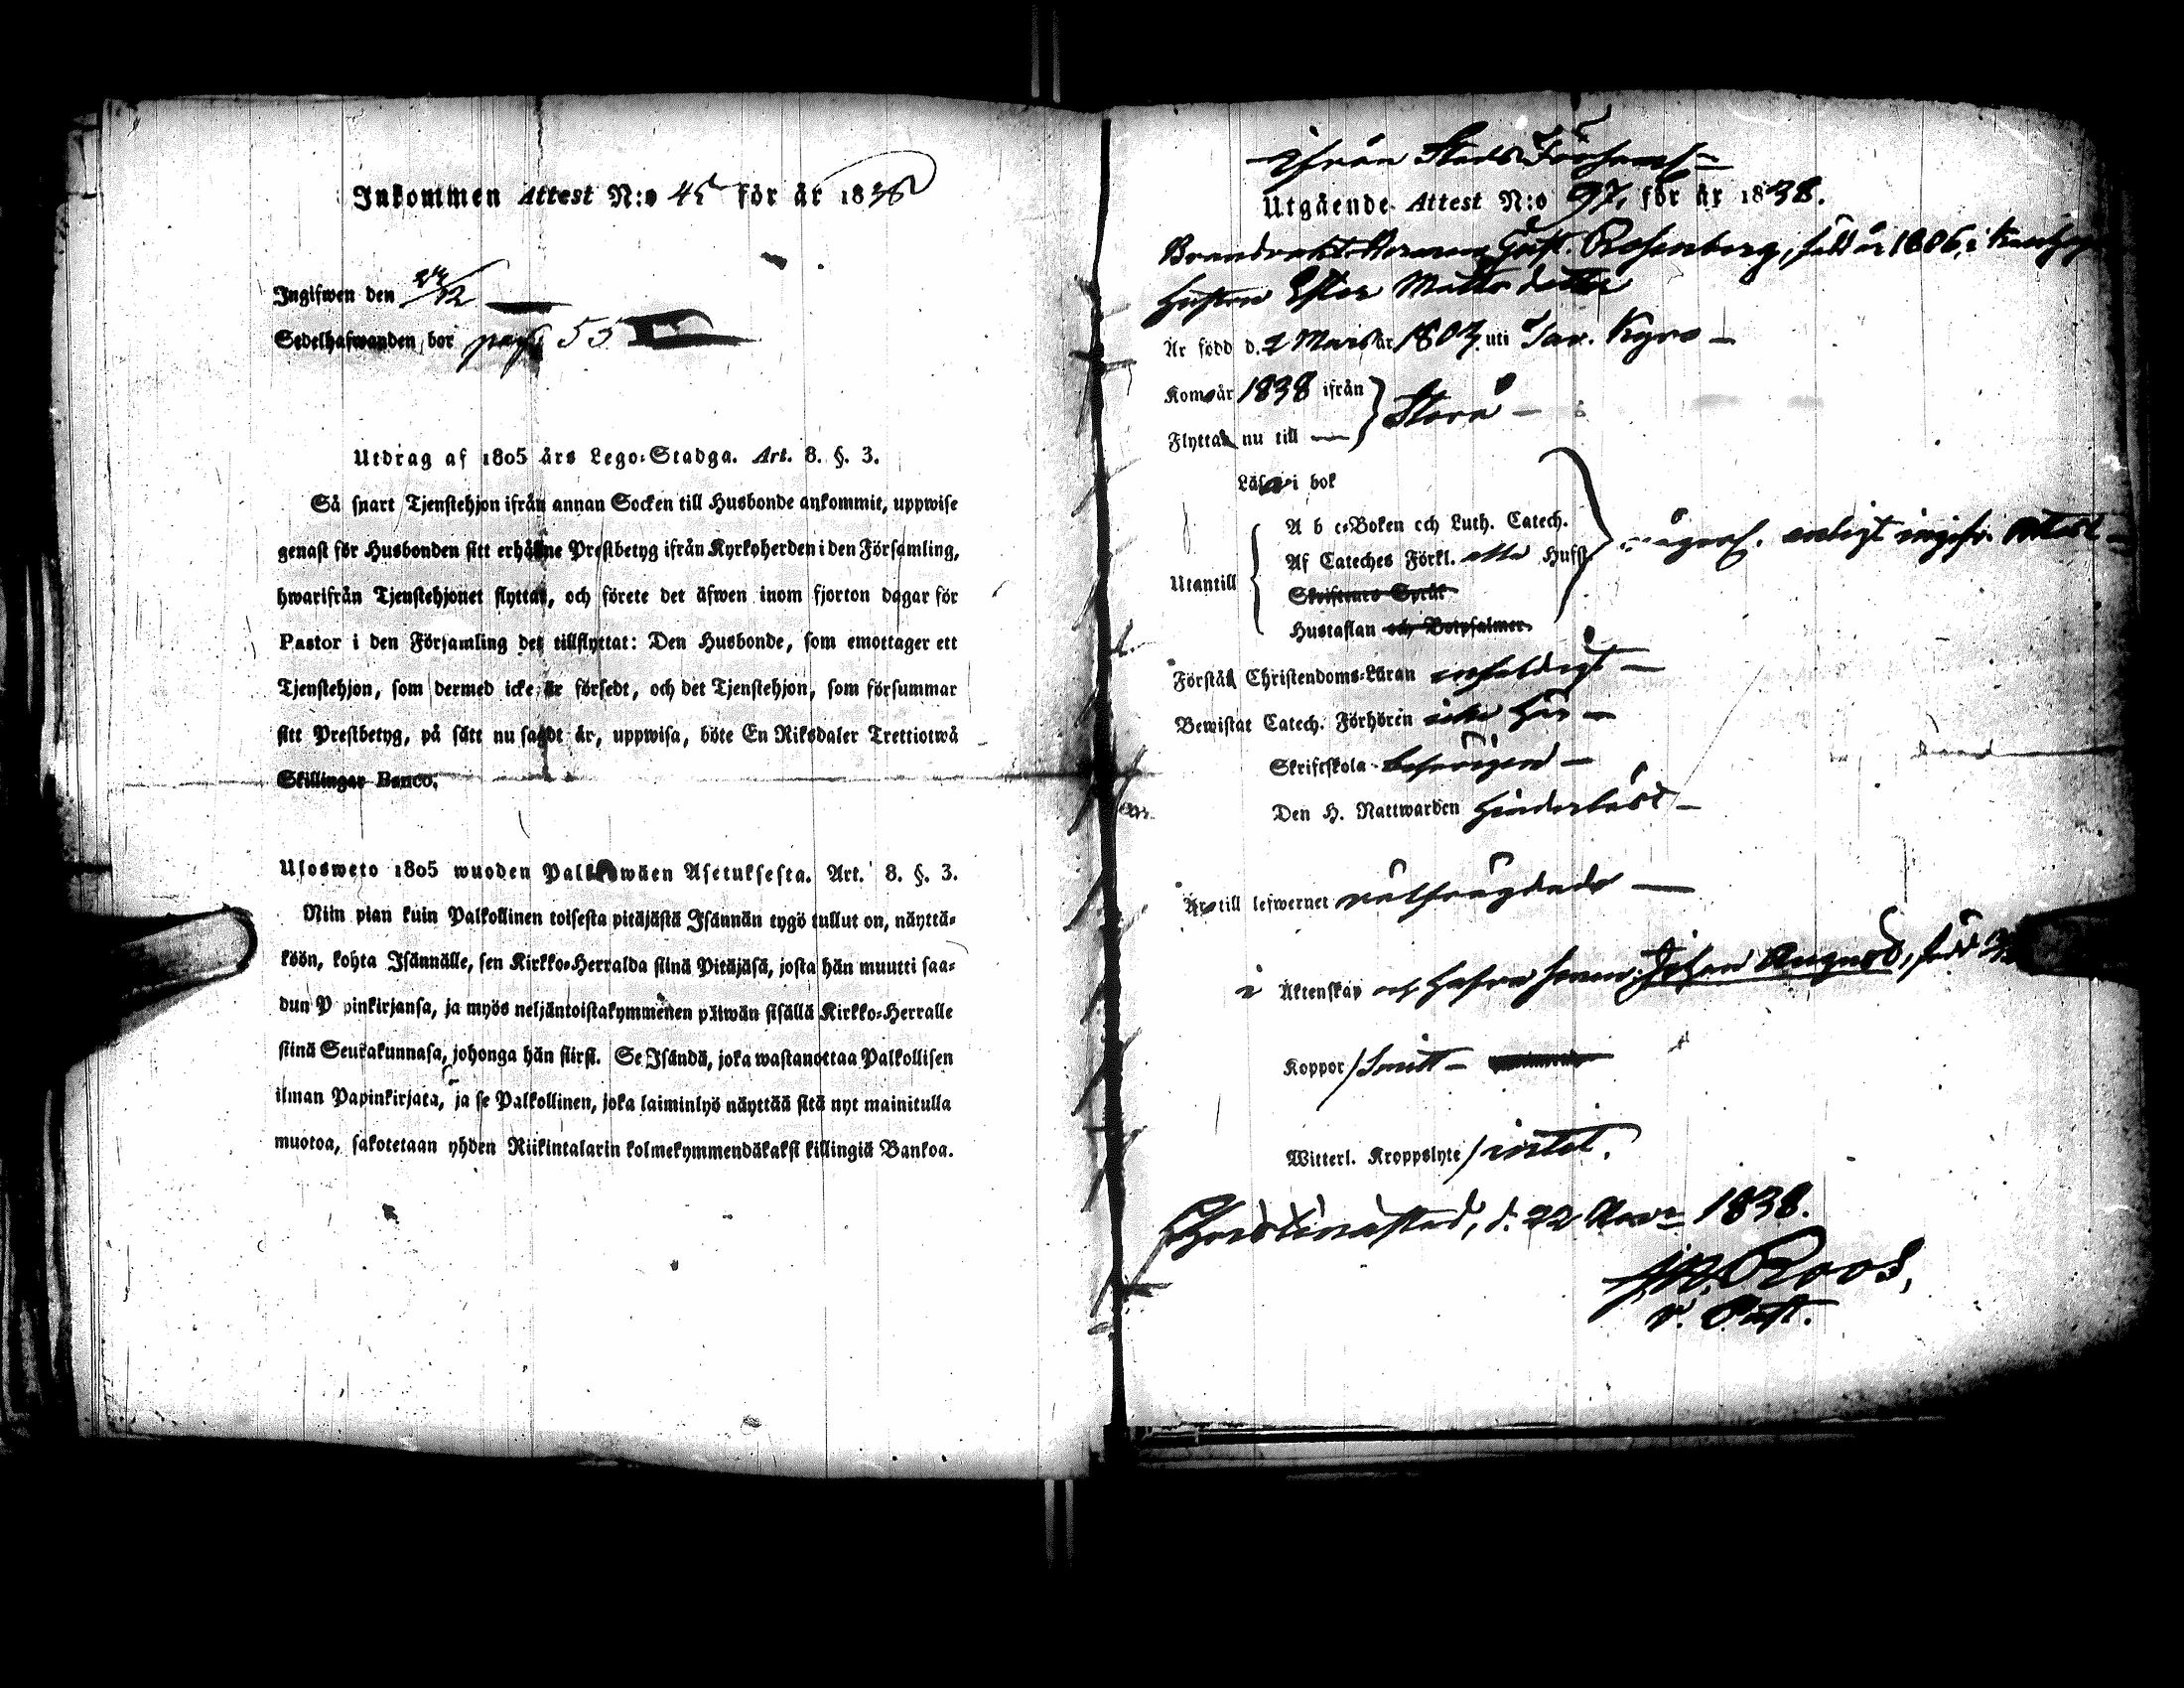 Inkommen Attest N:o 45 för år 1838
Ingifwen den 24/12
Sedelhafwanden bor pag 55
Utdrag af 1805 års Lego-Stadga. Art. 8. §. 3.
Så snart Tjenstehjon ifrån annan Socken till Husbonde ankommit, uppwise
genast för Husbonden sitt erhållne Prestbetyg ifrån Kyrkoherden i den Församling,
hwarifrån Tjenstehjonet flyttat, och förete det äfwen inom fjorton dagar för
Pastor i den Församling det tillflyttat: Den Husbonde, som emottager ett
Tjenstehjon, som dermed icke är försedt, och det Tjenstehjon, som försummar
sitt Prestbetyg, på sätt nu sagdt är, uppwisa, böte En Riksdaler Trettiotwå
Skillingar Banco.
Ulosweto 1805 wuoden Palkkowäen Asetuksesta. Art. 8. §. 3.
Niin pian kuin Palkollinen toisesta pitäjästä Isännän tygö tullut on, näyttä-
köön, kohta Isännälle, sen Kirkko-Herralda siinä Pitäjäsä, josta hän muutti saa-
dun P pinkirjansa, ja myös neljäntoistakymmenen päiwän sisällä Kirkko-Herralle
siinä Seurakunnasa, johonga hän siirsi. Se Isändä, joka wastanottaa Palkollisen
ilman Papinkirjata, ja se Palkollinen, joka laiminlyö näyttää sitä nyt mainitulla
muotoa, sakotetaan yhden Riikintalarin kolmekymmendäkaksi killingiä Bankoa.
ifrån Stads Församl.
Utgående Attest N:o 97, för år 1838.
Brandvakt Herman Gust. Rosenberg, född år 1806, i
Hustrun Ester Matts dotter
Är född d. 2 Mars år 1803 uti Tav. Kyro
Kom år 1838 ifrån
Storå
Flyttar nu till
Läsa i bok
A b c-Boken och Luth. Catech.
Af Cateches Förkl. Hufst.
enligt ingifv. attest
Utantill
Skriftenes Språk
Hustaflan och Botpsalmer.
Förstå Christendoms-Läran enfaldigt
Bewistat Catech. Förhören icke här
Skriftskola
Den H. Nattwarden Hinderlöst
Äro till lefwernet välfrägdade
i Äktenskap och hafva sonen Johan August, född
Koppor
Witterl. Kroppslyte / intet.
Christinæstad, d. 22 Nov. 1838.
Roos,
v. Past.